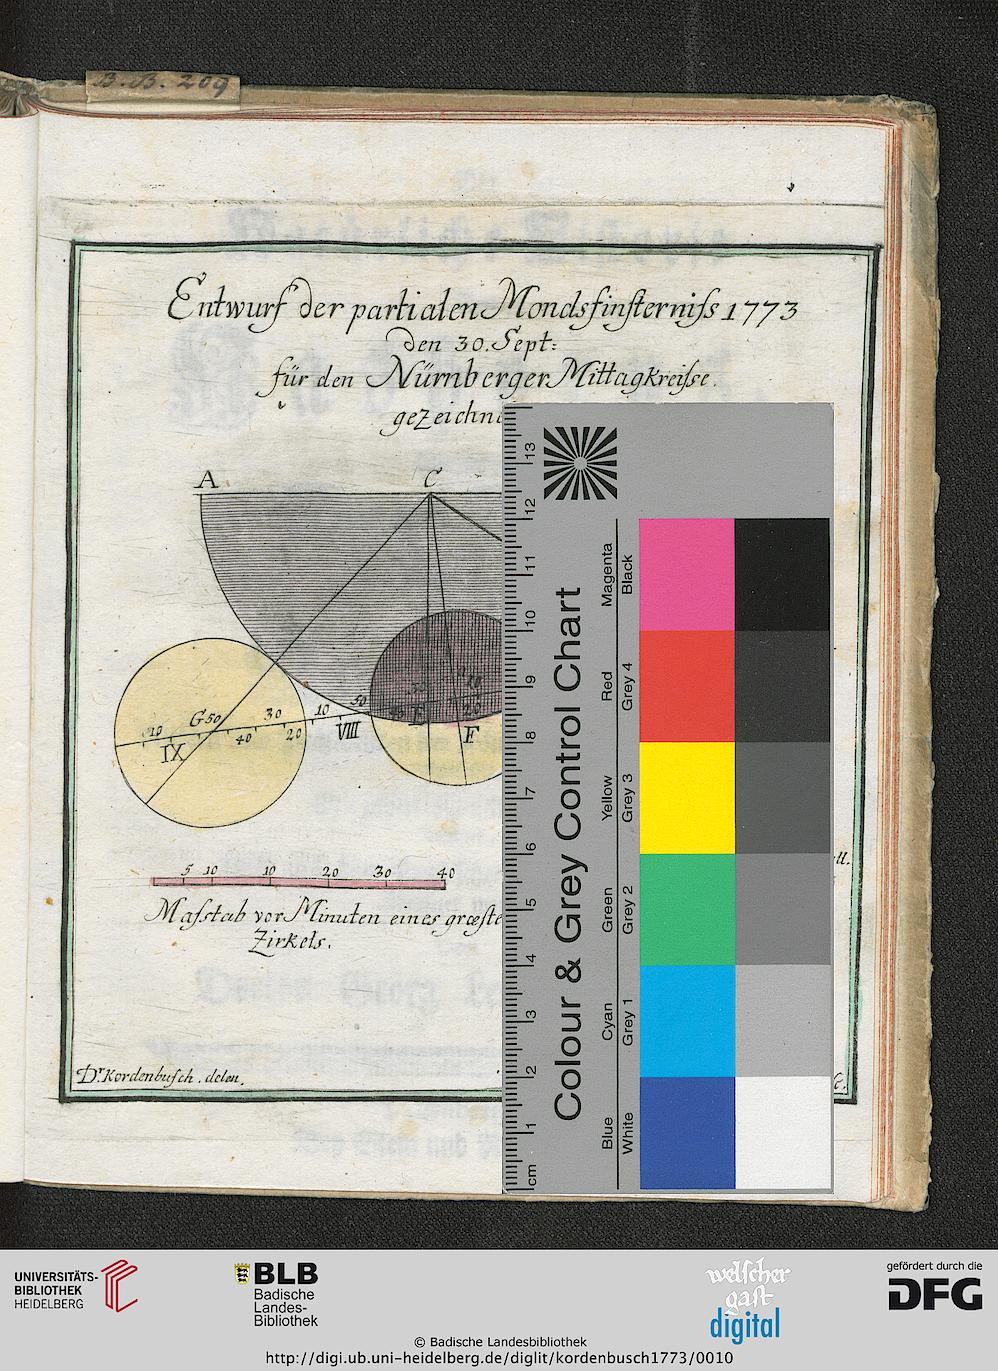 B.B. 209
Entwurf der partialen Mondsfinsterniſs 1773
den 30. Sept:
für den Nürnberger Mittagkreiſse.
gezeichn
A
C
G 50
30
10
50
10
40
20
IX
VIII
E
F
5 10 10 20 30 40
Maſstab vor Minuten eines græſte
Zirkels.
Dr. Kordenbuſch. delin.
Colour & Grey Control Chart
Magenta
Black
Red
Grey 4
Yellow
Grey 3
Green
Grey 2
Cyan
Grey 1
Blue
White
13
12
11
10
9
8
7
6
5
4
3
2
1
cm
UNIVERSITÄTS-
BIBLIOTHEK
HEIDELBERG
BLB
Badische
Landes-
Bibliothek
welscher
gast
digital
gefördert durch die
DFG
© Badische Landesbibliothek
http://digi.ub.uni-heidelberg.de/diglit/kordenbusch1773/0010